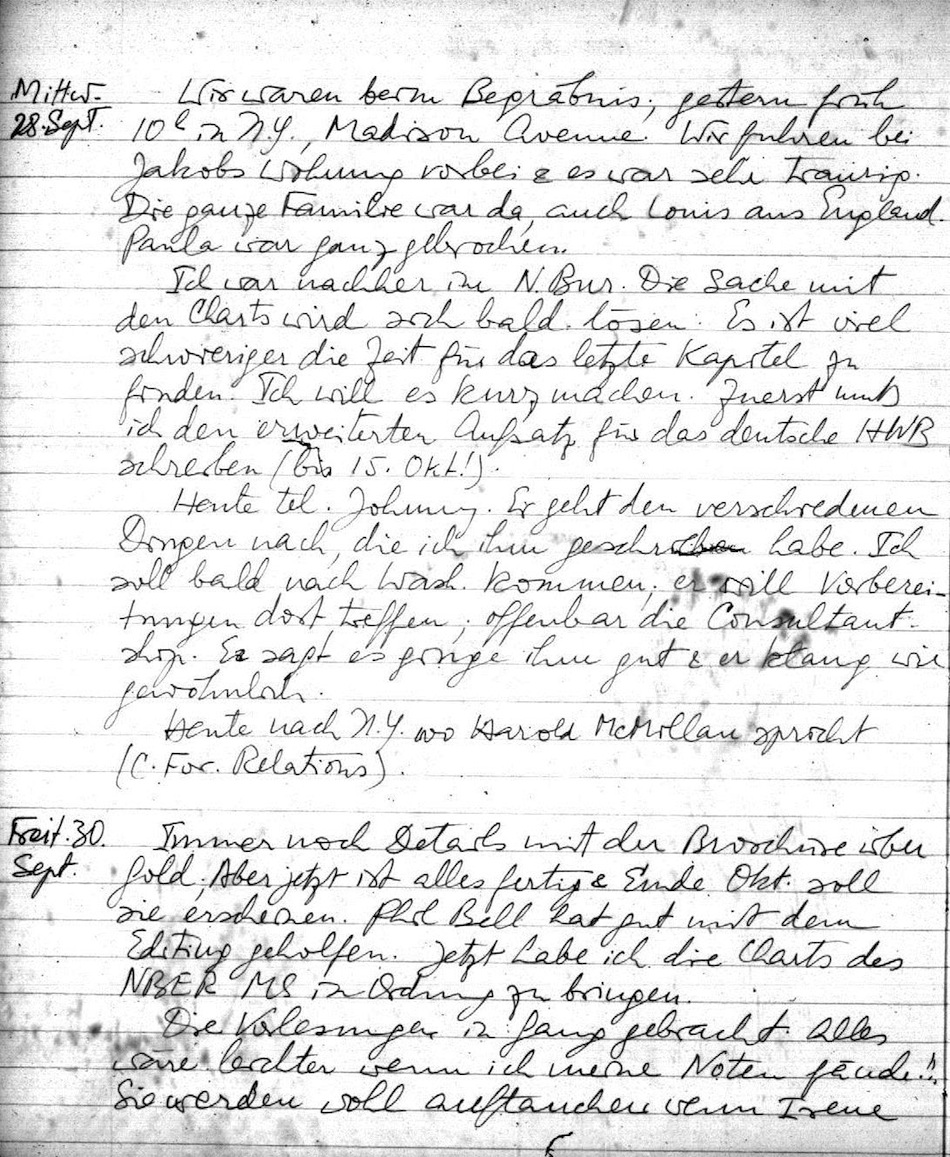 Mittw. Wir waren beim Begräbnis; gestern früh
28. Sept. 10h in N.Y., Madison Avenue. Wir fuhren bei
Jakobs Wohnung vorbei & es war sehr traurig.
Die ganze Familie war da, auch Louis aus England.
Paula war ganz gebrochen.
Ich war nachher im N. Bur. Die Sache mit
den Charts wird sich bald lösen. Es ist viel
schwieriger die Zeit für das letzte Kapitel zu
finden. Ich will es kurz machen. Zuerst muß
ich den erweiterten Aufsatz für das deutsche HWB
schreiben (bis 15. Okt.!).
Heute tel. Johnny. Er geht den verschiedenen
Dingen nach, die ich ihm geschrieben habe. Ich
soll bald nach Wash. kommen; er will Vorberei-
tungen dort treffen; offenbar die Consultant-
ship. Er sagt es ginge ihm gut & er klang wie
gewöhnlich.
Heute nach N.Y. wo Harold McMillan spricht
(C. For. Relations).
Freit. 30. Immer noch Details mit der Broschüre über
Sept. Gold; Aber jetzt ist alles fertig & Ende Okt. soll
sie erscheinen. Phil Bell hat gut mit dem
Editing geholfen. Jetzt habe ich die Charts des
NBER MS in Ordnung zu bringen.
Die Vorlesungen in Gang gebracht. Alles
wäre leichter wenn ich meine Noten fände!!
Sie werden wohl auftauchen wenn Irene